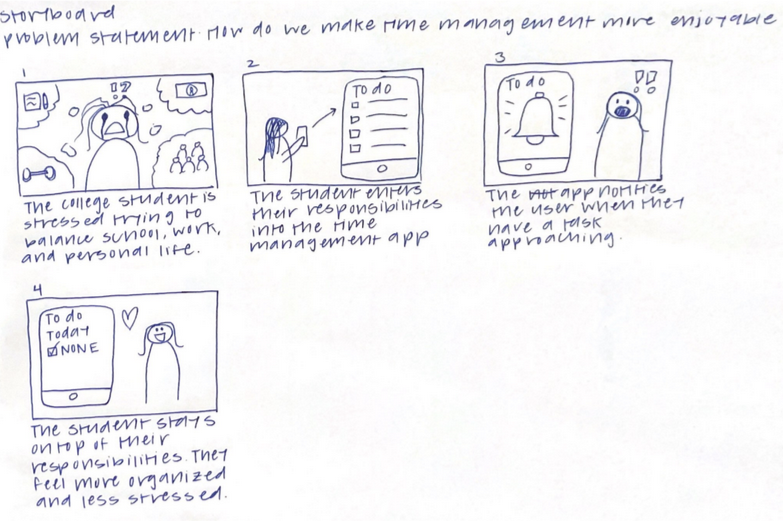 storyboard
problem statement: How do we make time management more enjoyable
1
!?
The college student is
stressed trying to
balance school, work,
and personal life.
2
To do
The student enters
their responsibilities
into the time
management app
3
To do
!!
The not app notifies
the user when they
have a task
approaching.
4
To do
Today
NONE
The student stays
on top of their
responsibilities. They
feel more organized
and less stressed.